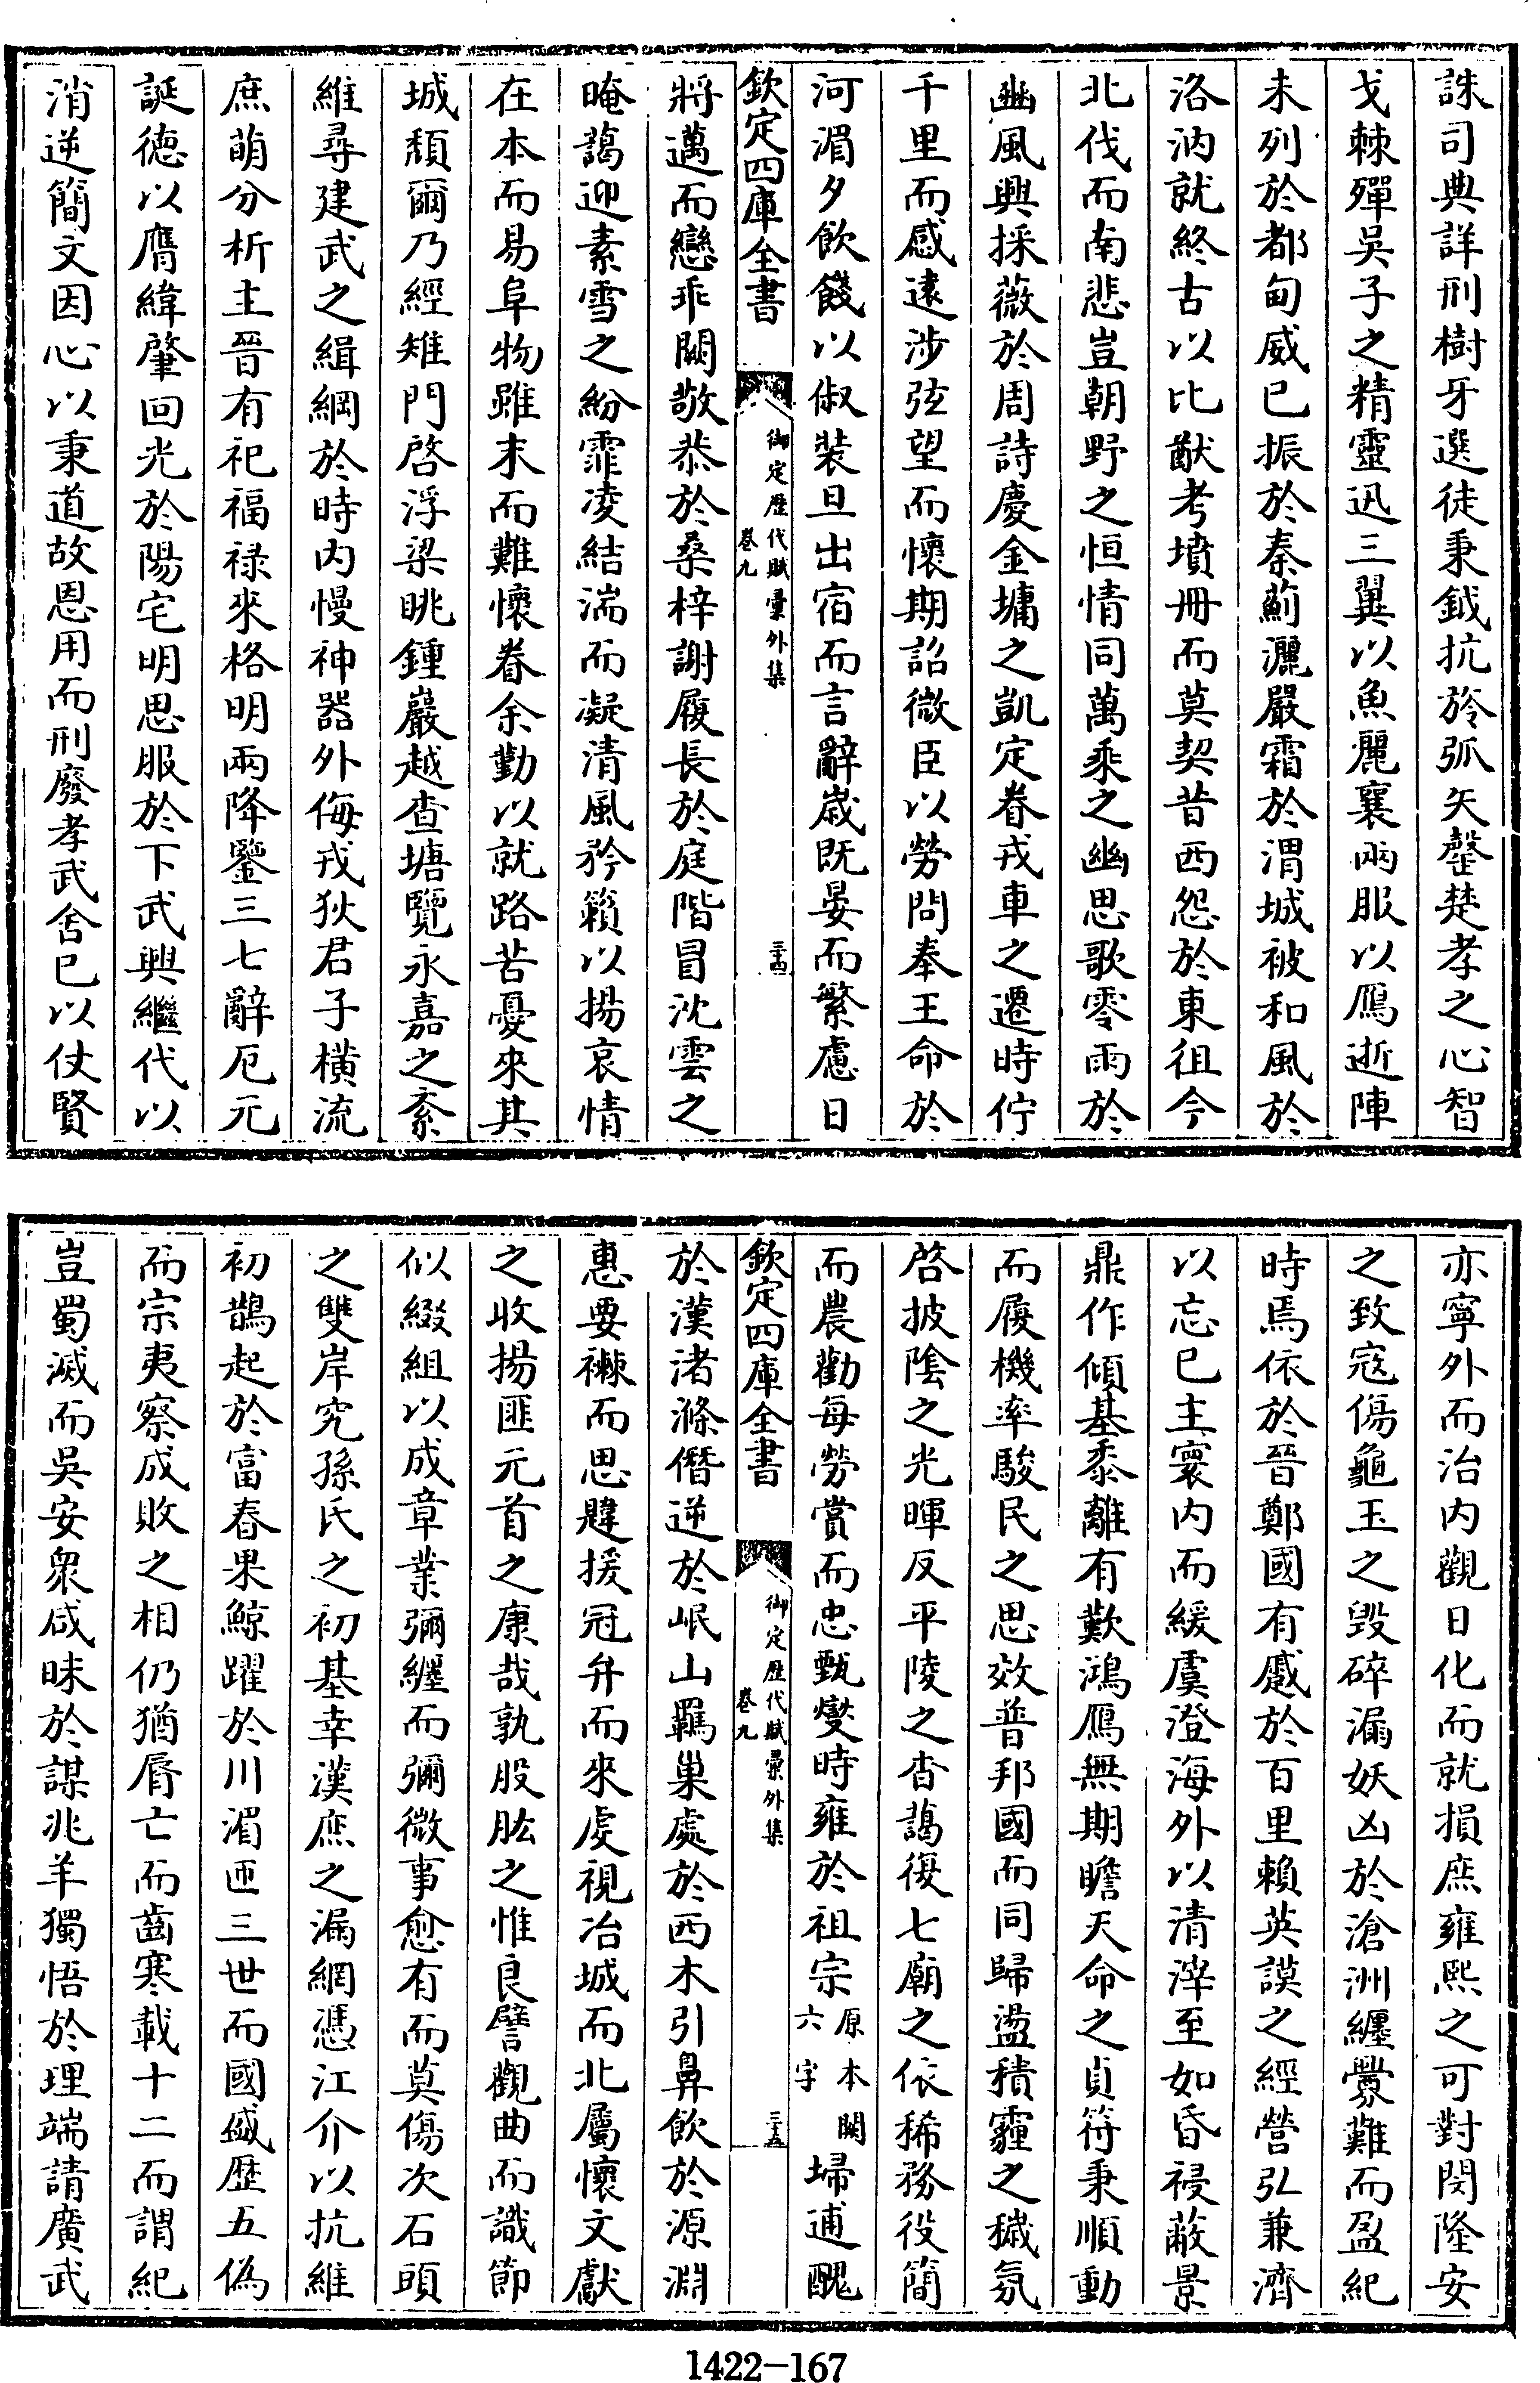 誅司典詳刑樹牙選徒秉鉞抗於弧矢罄楚孝之心智
戈棘殫吳子之精靈迅三翼以魚麗襄兩服以鴈逝陣
未列於都甸威已振於秦薊灑嚴霜於渭城被和風於
洛汭就終古以比猷考墳冊而莫契昔西怨於東徂今
北伐而南悲豈朝野之恒情同萬乘之幽思歌零雨於
豳風興採薇於周詩慶金墉之凱定眷戎車之遷時佇
千里而感遠涉弦望而懷期詔微臣以勞問奉王命於
河湄夕飲餞以俶裝旦出宿而言辭歲既晏而繁慮日
欽定四庫全書
御定歷代賦彙外集
卷九
三十四
將邁而戀乖闕敬恭於桑梓謝履長於庭階冒沈雲之
晻藹迎素雪之紛霏凌結湍而凝清風矜籟以揚哀情
在本而易阜物雖末而難懷眷余勤以就路苦憂來其
城頹爾乃經雉門啓浮梁眺鍾巖越查塘覽永嘉之紊
維尋建武之緝綱於時内慢神器外侮戎狄君子橫流
庶萌分析主晉有祀福禄來格明兩降鑒三七辭厄元
誕徳以膺緯肇回光於陽宅明思服於下武興繼代以
消逆簡文因心以秉道故恩用而刑廢孝武舍已以仗賢
亦寧外而治内觀日化而就損庶雍熙之可對閔隆安
之致寇傷龜玉之毀碎漏妖凶於滄洲纏釁難而盈紀
時焉依於晉鄭國有蹙於百里賴英謨之經營弘兼濟
以忘已主寰内而緩虞澄海外以清滓至如昏祲蔽景
鼎作傾基黍離有歎鴻鴈無期瞻天命之貞符秉順動
而履機率駿民之思效普邦國而同歸盪積霾之穢氛
啓披陰之光暉反平陵之杳藹復七廟之依稀務役簡
而農勸每勞賞而忠甄燮時雍於祖宗原本闕六字埽逋醜
欽定四庫全書
御定歷代賦彙外集
卷九
三十五
於漢渚滌僭逆於岷山羈巢處於西木引鼻飲於源淵
惠要襋而思韙援冠弁而來虔視冶城而北屬懷文獻
之收揚匪元首之康哉孰股肱之惟良譬觀曲而識節
似綴組以成章業彌纏而彌微事愈有而莫傷次石頭
之雙岸究孫氏之初基幸漢庶之漏網憑江介以抗維
初鵲起於富春果鯨躍於川湄匝三世而國盛歷五偽
而宗夷察成敗之相仍猶脣亡而齒寒載十二而謂紀
豈蜀滅而吳安衆咸昧於謀兆羊獨悟於理端請廣武
1422-167